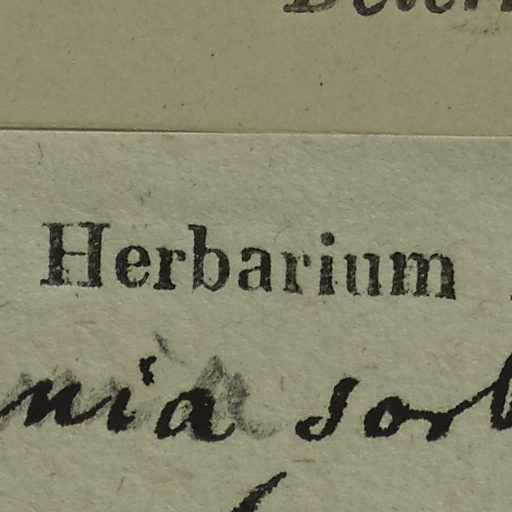 Herbarium
nia sorb